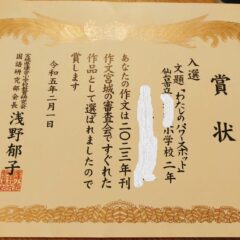 賞状
入選
文題「わたしのパワースポット」
仙台市立 小学校二年
あなたの作文は二〇二三年刊
作文宮城の審査会ですぐれた
作品として選ばれましたので
賞します
令和五年二月一日
国語研究部会長 浅野郁子